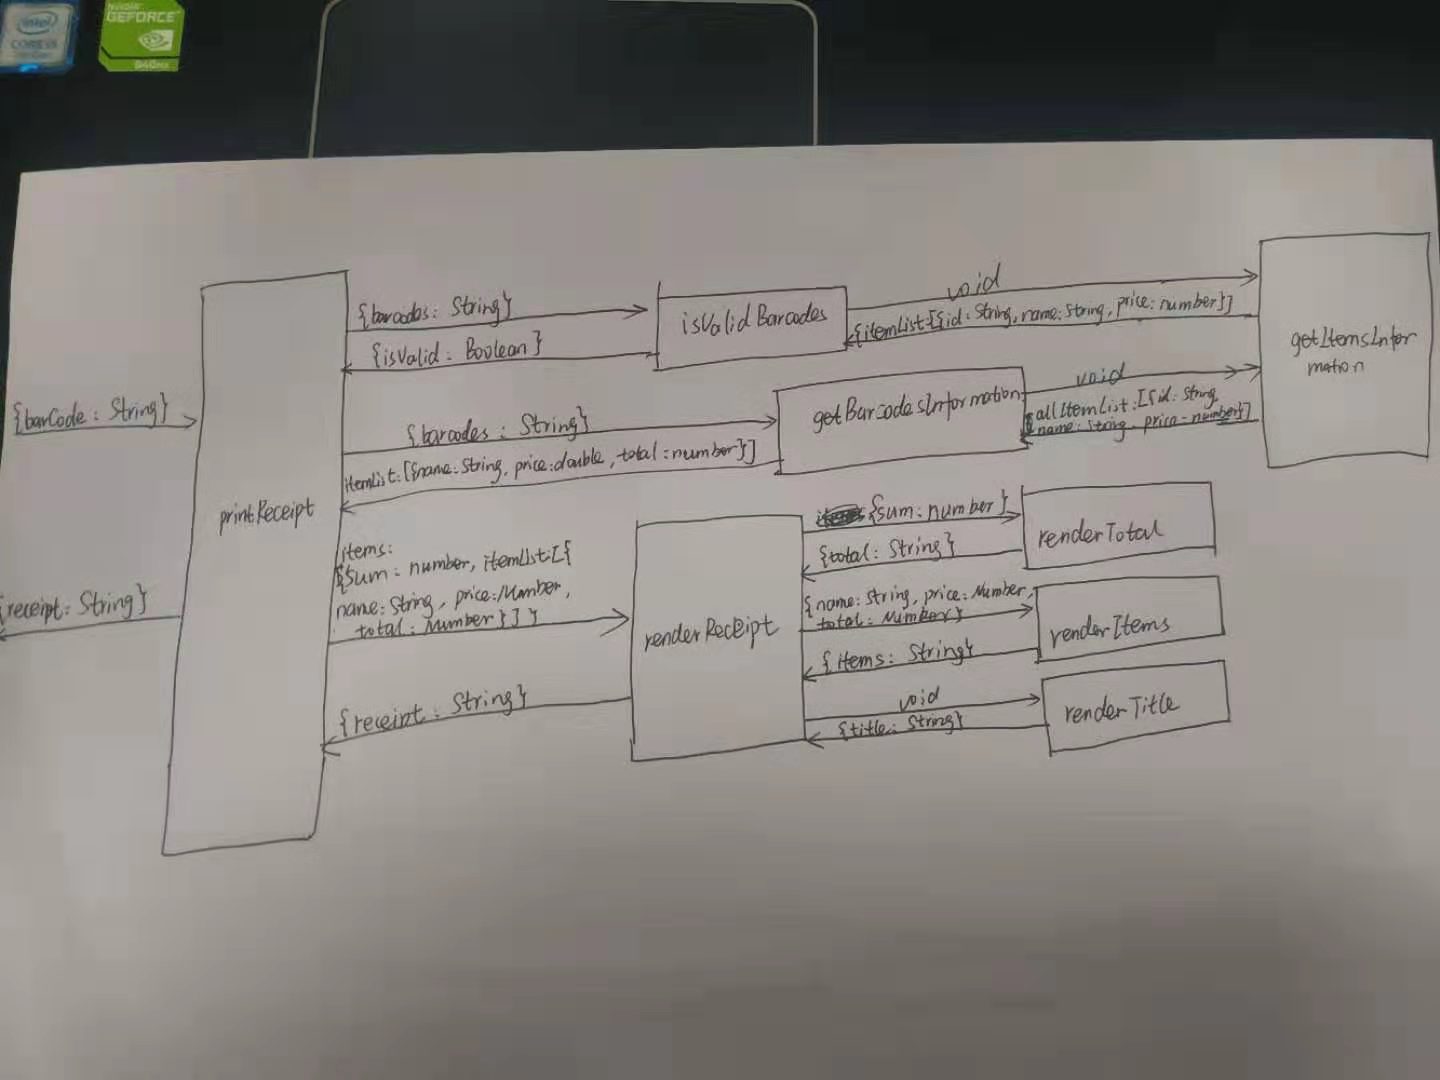 intel
CORE i5
NVIDIA
GEFORCE
940MX
{barCode: String}
{receipt: String}
printReceipt
{barcodes: String}
{isValid: Boolean}
isValidBarcodes
void
{itemList:[{id: String, name: String, price: number}]
getItemsInfor
mation
{barcodes: String}
itemList:[{name: String, price: double, total: number}]
getBarcodesInformation
void
{allItemList:[{id: String
name: String, price: number}]
items:
{sum: number, itemList:[{
name: String, price: Number,
total: Number}]}
{receipt: String}
renderReceipt
{sum: number}
{total: String}
renderTotal
{name: String, price: Number,
total: Number}
{items: String}
renderItems
void
{title: String}
renderTitle